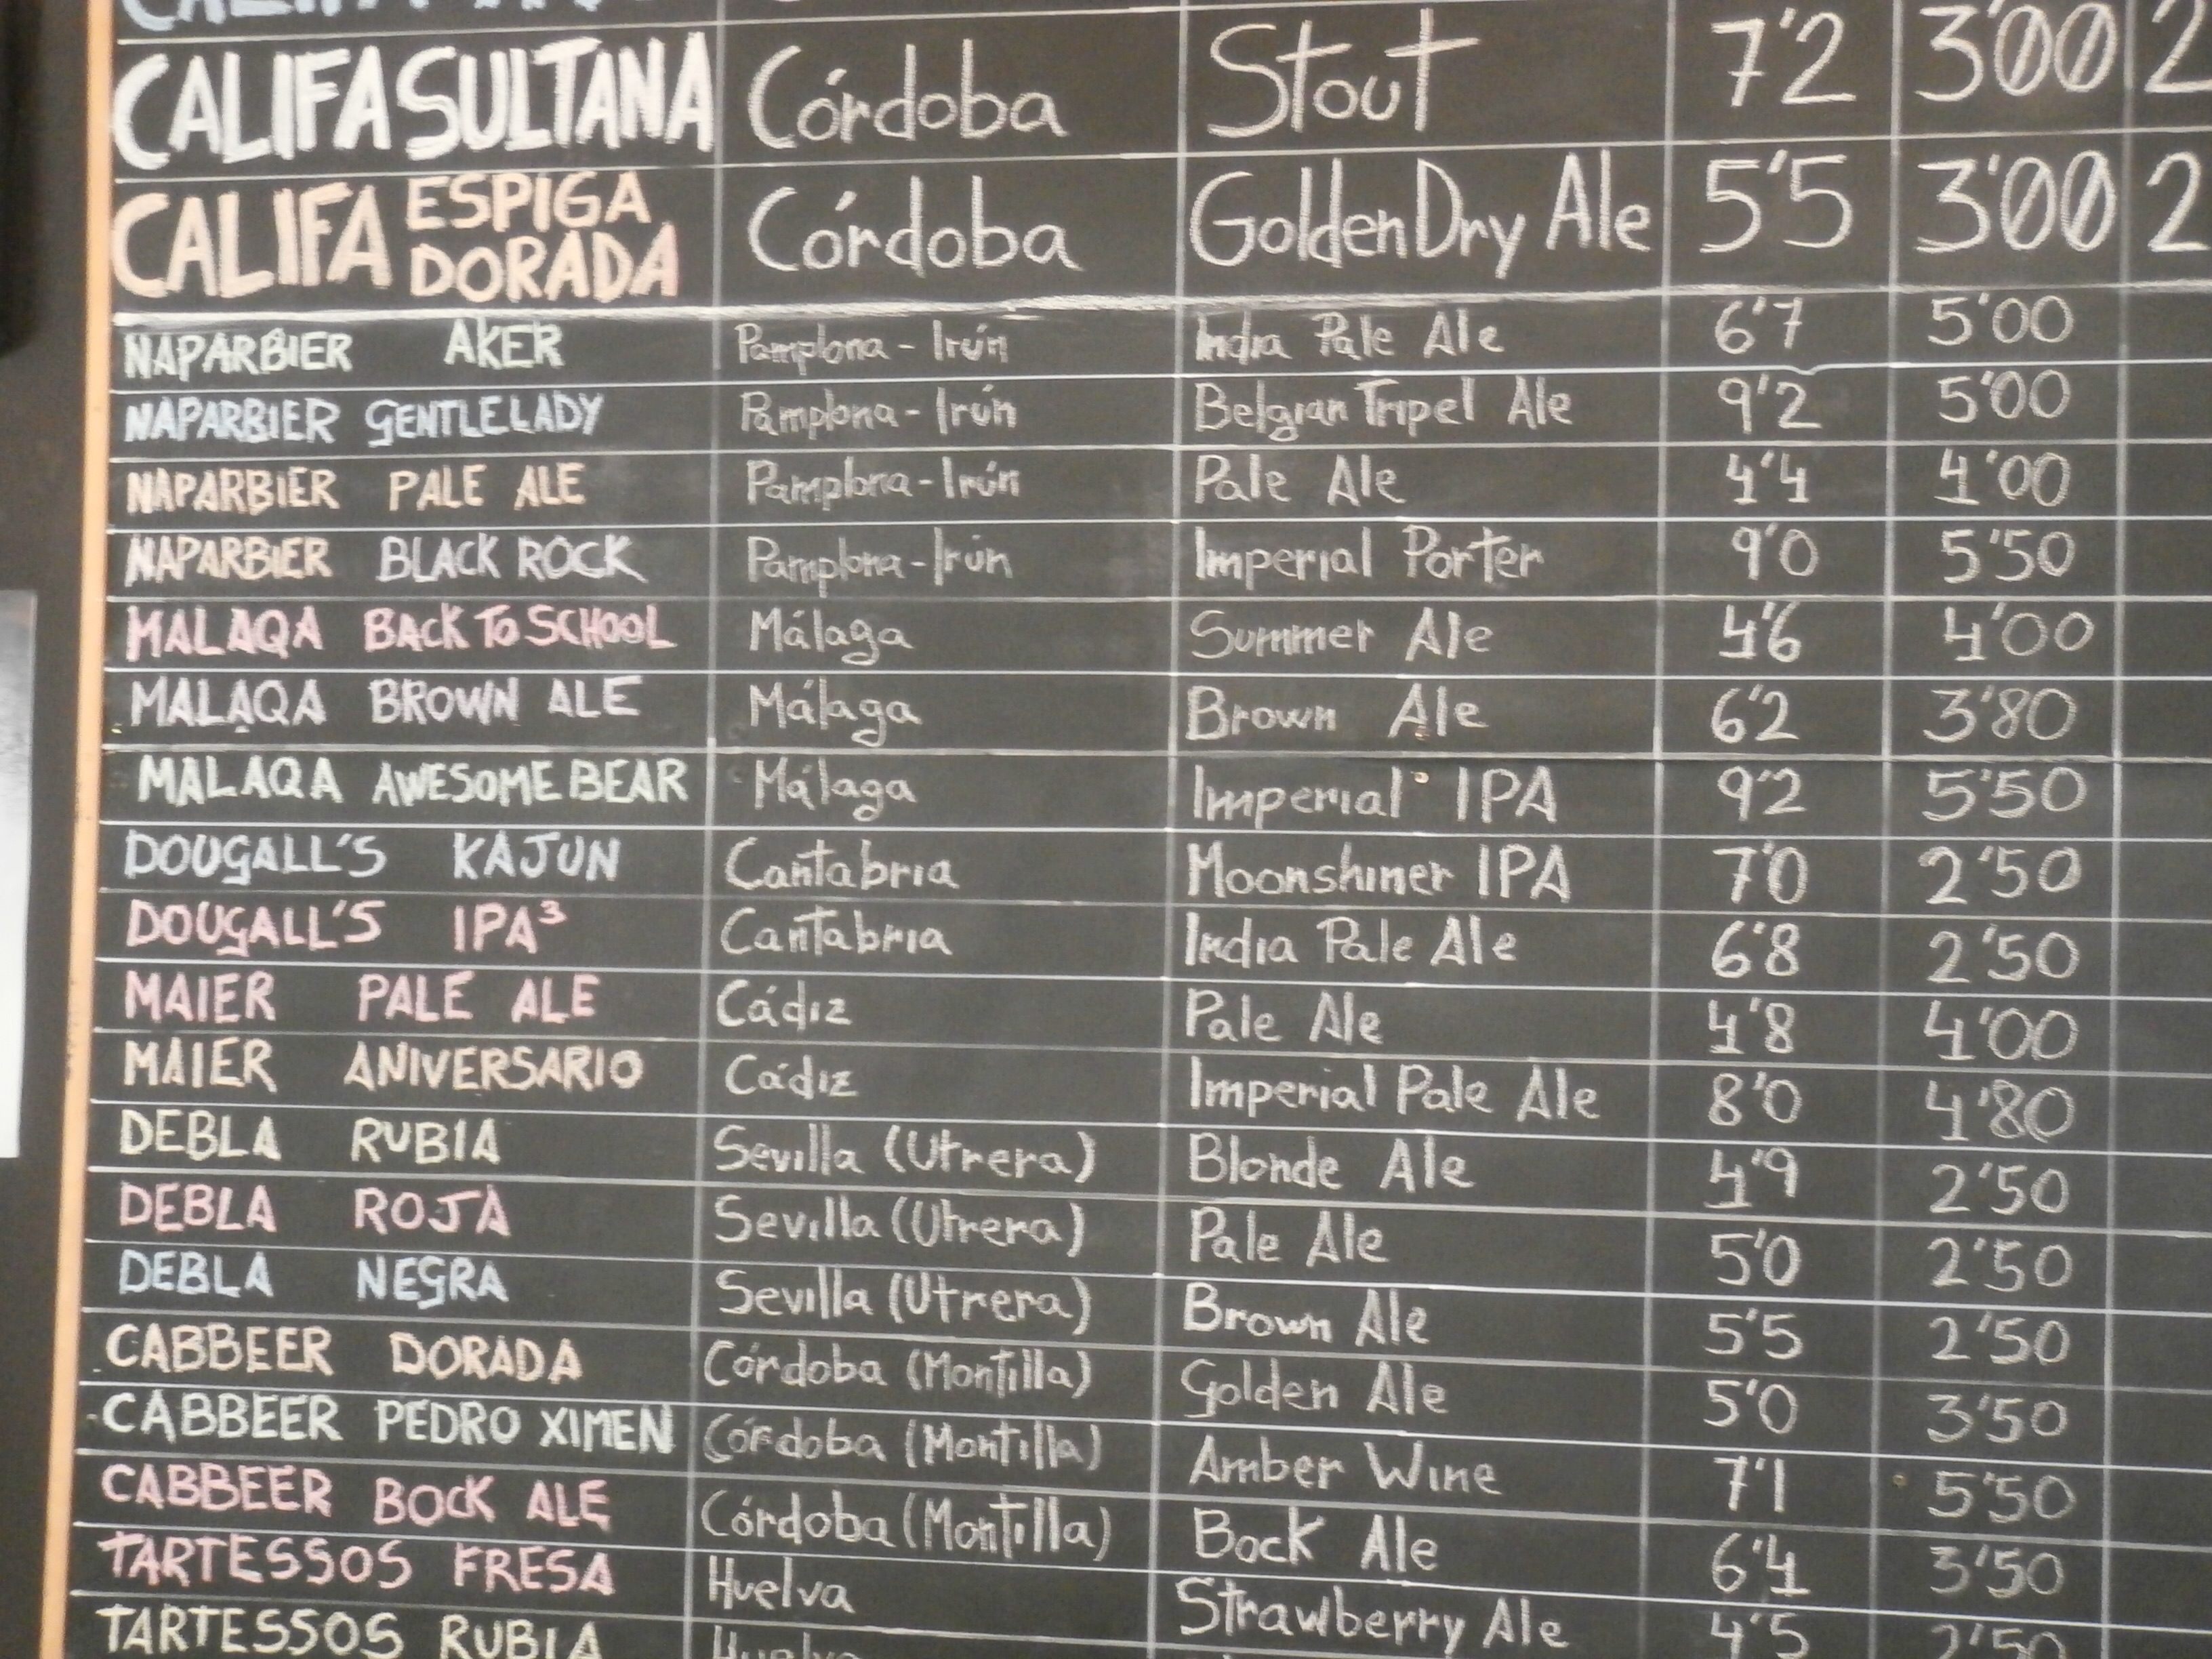 CALIFA SULTANA Córdoba Stout 7'2 3'00 2
CALIFA ESPIGA DORADA Córdoba Golden Dry Ale 5'5 3'00 2
NAPARBIER AKER Pamplona - Irún India Pale Ale 6'7 5'00
NAPARBIER GENTLE LADY Pamplona - Irún Belgian Tripel Ale 9'2 5'00
NAPARBIER PALE ALE Pamplona - Irún Pale Ale 4'4 4'00
NAPARBIER BLACK ROCK Pamplona - Irún Imperial Porter 9'0 5'50
MALAQA BACK TO SCHOOL Málaga Summer Ale 4'6 4'00
MALAQA BROWN ALE Málaga Brown Ale 6'2 3'80
MALAQA AWESOME BEAR Málaga Imperial IPA 9'2 5'50
DOUGALL'S KAJUN Cantabria Moonshiner IPA 7'0 2'50
DOUGALL'S IPA³ Cantabria India Pale Ale 6'8 2'50
MAIER PALE ALE Cádiz Pale Ale 4'8 4'00
MAIER ANIVERSARIO Cádiz Imperial Pale Ale 8'0 4'80
DEBLA RUBIA Sevilla (Utrera) Blonde Ale 4'9 2'50
DEBLA ROJA Sevilla (Utrera) Pale Ale 5'0 2'50
DEBLA NEGRA Sevilla (Utrera) Brown Ale 5'5 2'50
CABBEER DORADA Córdoba (Montilla) Golden Ale 5'0 3'50
CABBEER PEDRO XIMEN Córdoba (Montilla) Amber Wine 7'1 5'50
CABBEER BOCK ALE Córdoba (Montilla) Bock Ale 6'4 3'50
TARTESSOS FRESA Huelva Strawberry Ale 4'5 2'50
TARTESSOS RUBIA Huelva